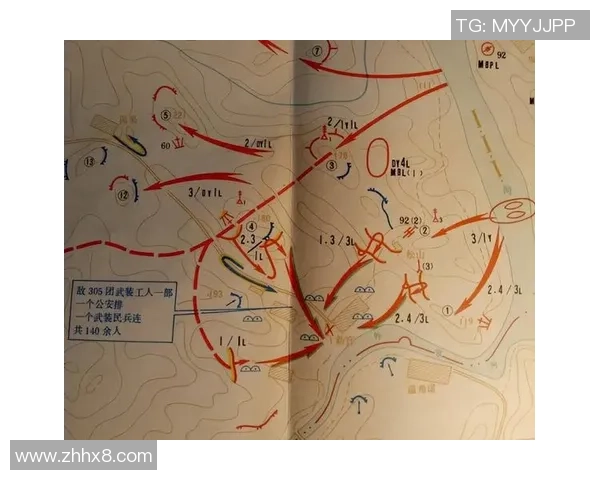 TG: MYYJJPP
⑦
92
MBPL
(1)
⑤
60
2/0Y1L
2/1Y1L
③
0Y4L
MBL(1)
⑬
⑫
3/0Y1L
④
2.3
1L
1.3/3L
92(2)
②
松山
(3)
3/1Y
2.4/3L
①
2.4/3L
93
敌305团武装工人一部
一个公安排
一个武装民兵连
共140余人
1/1L
www.zhhx8.com